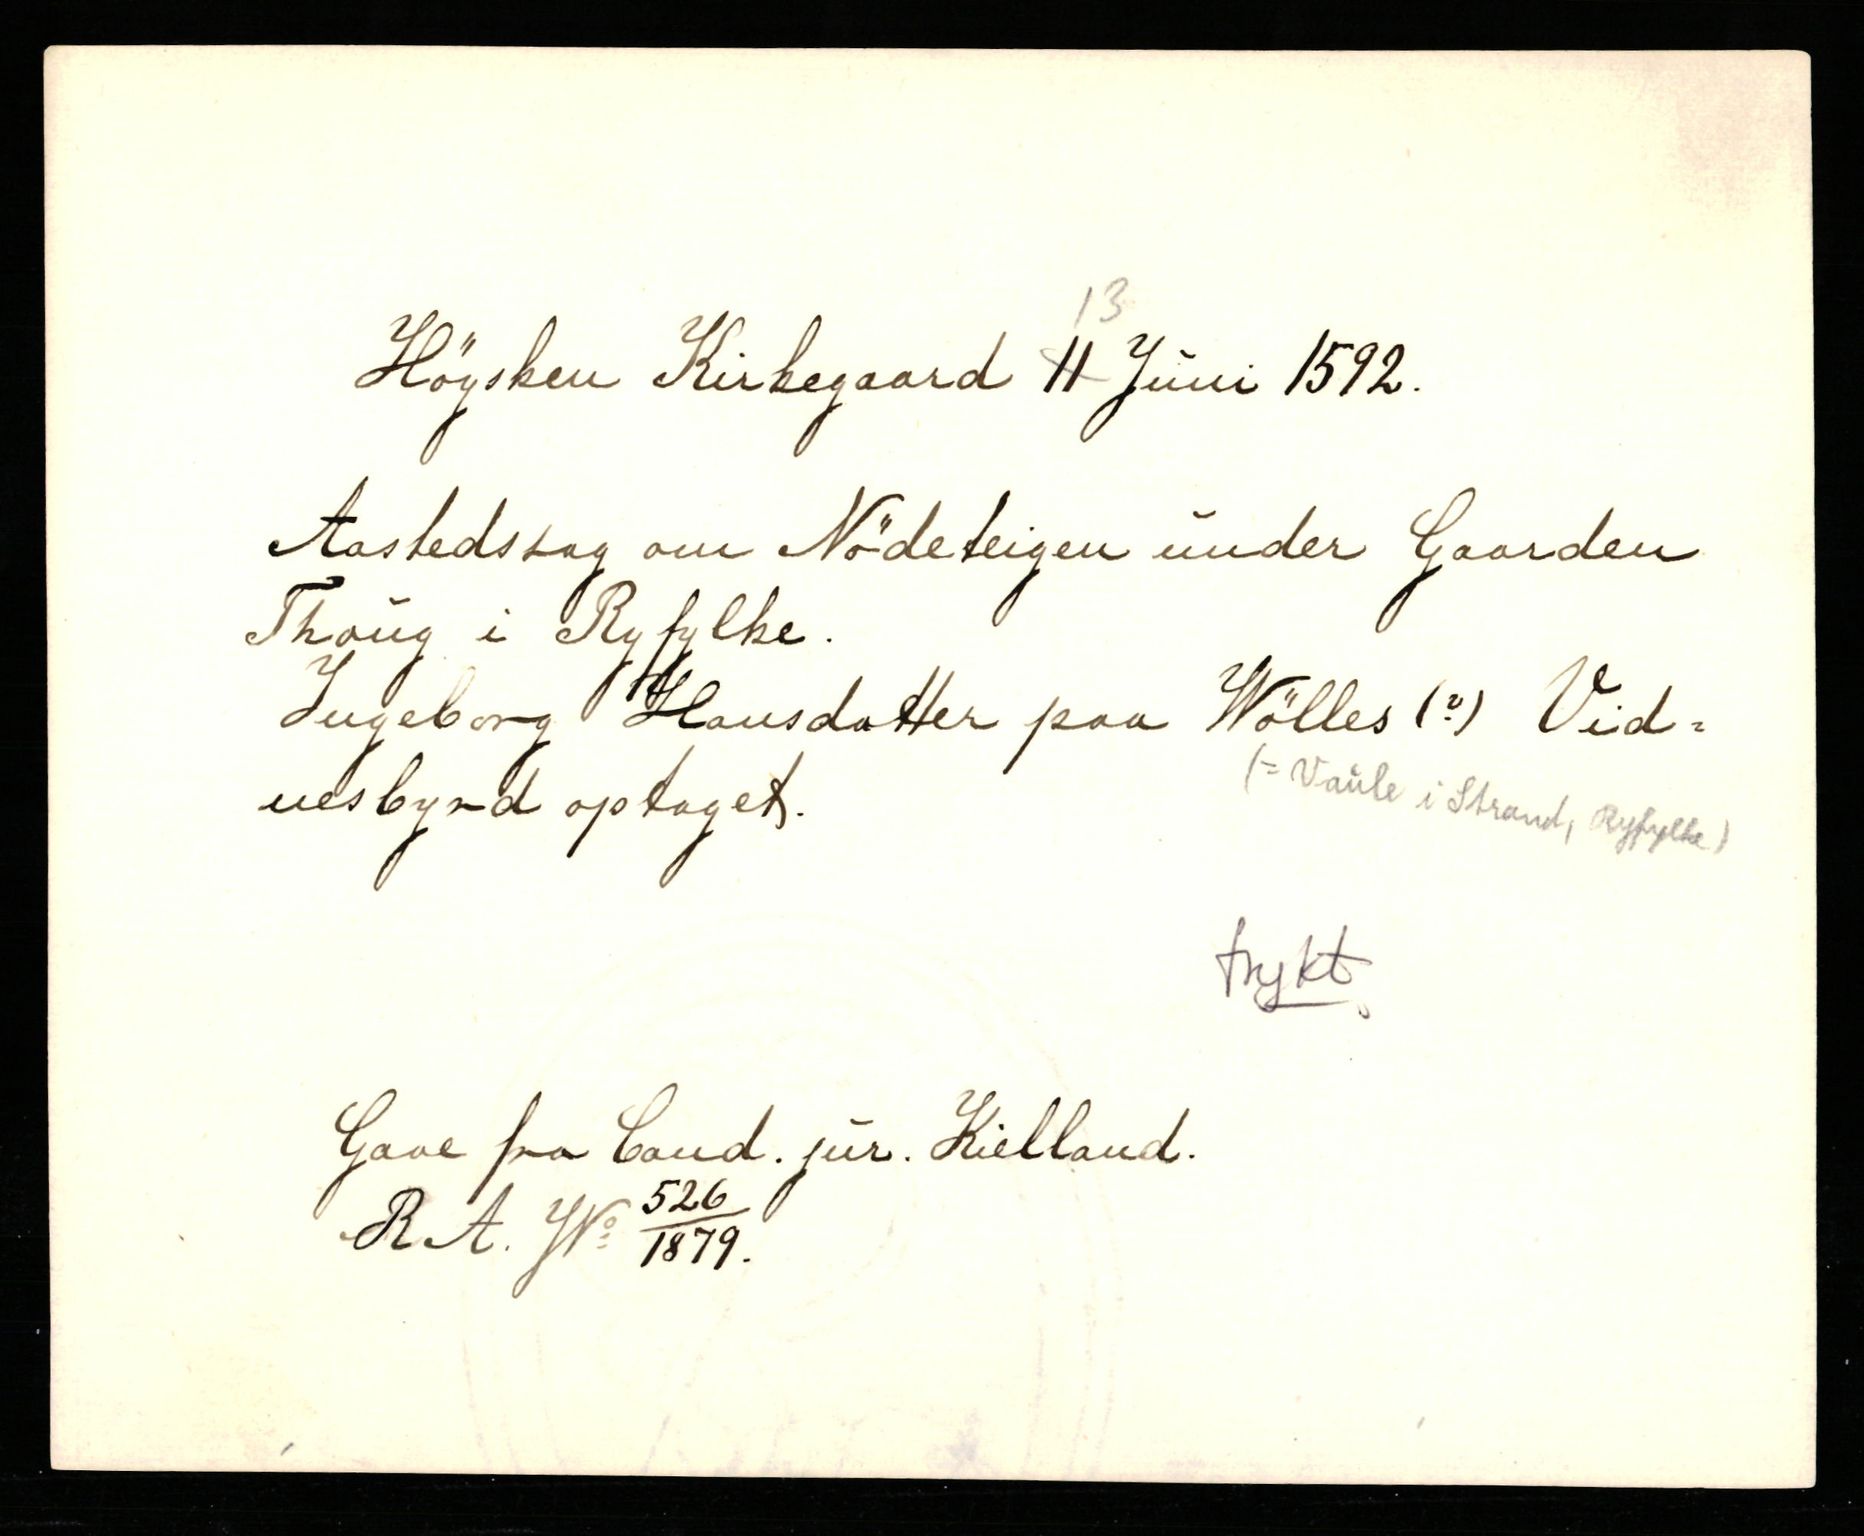 13
Högsken Kirkegaard 11 Juni 1592.
Aastedssag om Nödeteigen under Gaarden
Thoug i Ryfylke.
Ingeborg Hansdatter paa Wölles (?) Vid=
nesbyrd optaget.
(= Vaule i Strand, Ryfylke)
trykt
Gave fra Cand. jur. Kielland.
R. A. J№ 526/1879.